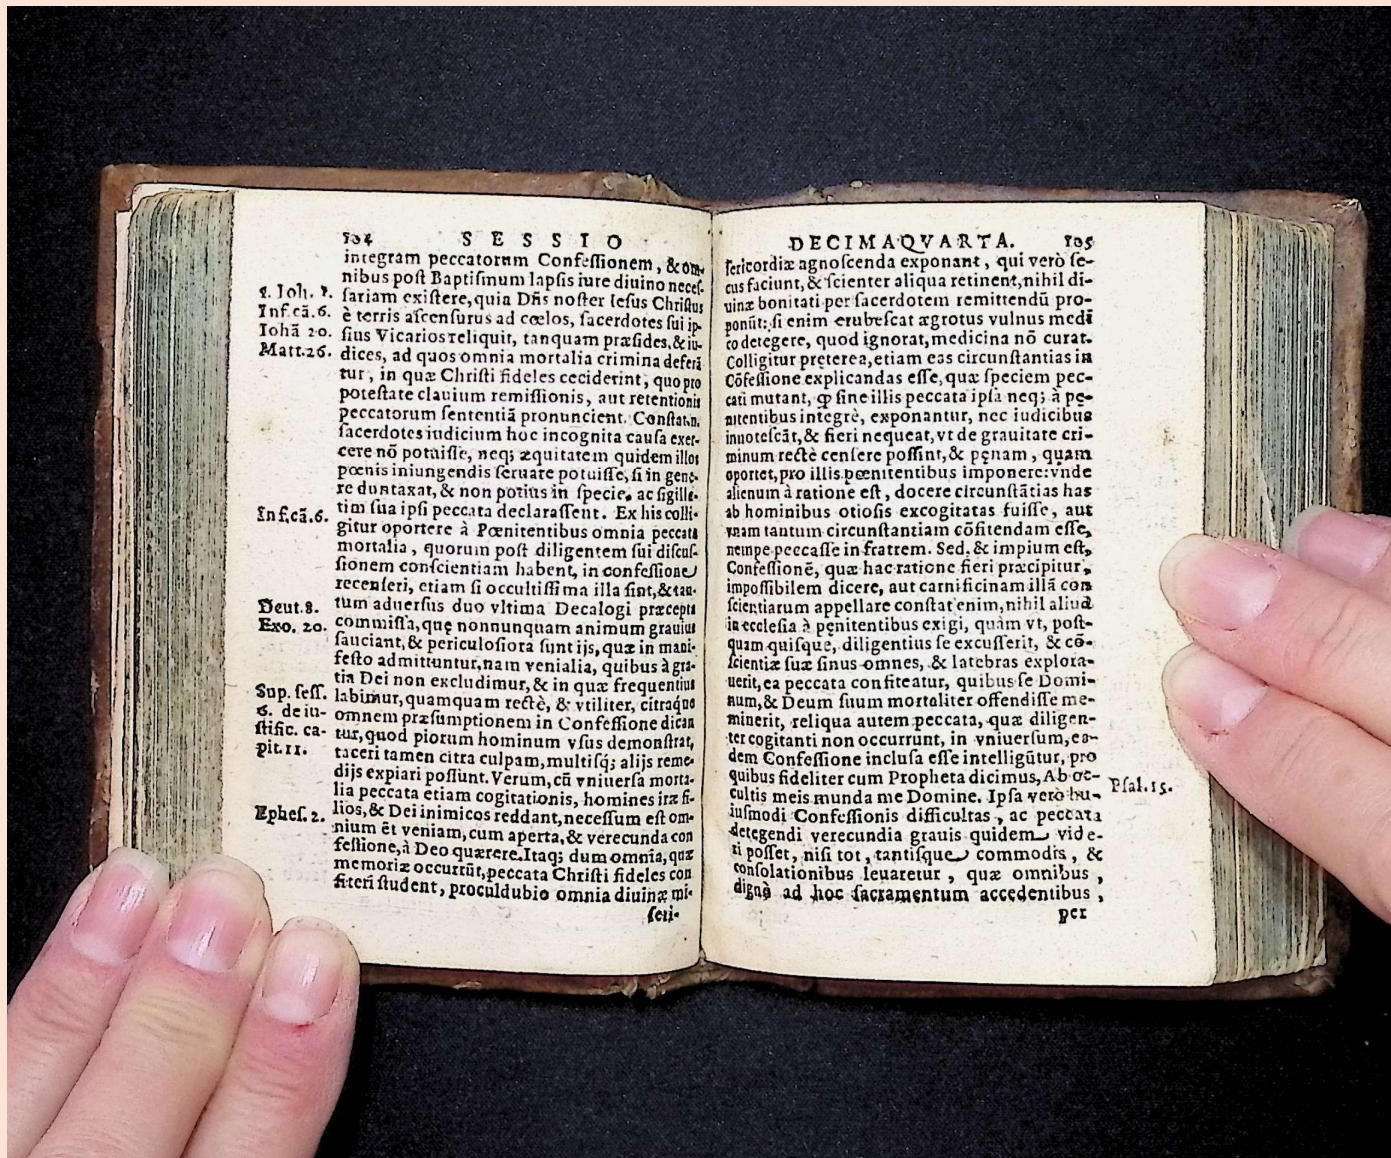 104 SESSIO
integram peccatorum Confeſſionem, & om-
nibus poſt Baptiſmum lapſis iure diuino neceſ-
1. Ioh. 1. ſariam exiſtere, quia Dñs noſter Ieſus Chriſtus
Inf. cã. 6. è terris aſcenſurus ad cœlos, ſacerdotes ſui ip-
Iohã 20. ſius Vicarios reliquit, tanquam præſides, & iu-
Matt. 26. dices, ad quos omnia mortalia crimina deferã
tur, in quæ Chriſti fideles ceciderint, quo pro
poteſtate clauium remiſſionis, aut retentionis
peccatorum ſententiã pronuncient. Conſtat.n.
ſacerdotes iudicium hoc incognita cauſa exer-
cere nõ potuiſſe, neq; æquitatem quidem illos
pœnis iniungendis ſeruare potuiſſe, ſi in gene-
re duntaxat, & non potius in ſpecie, ac ſigilla-
tim ſua ipſi peccata declaraſſent. Ex his colli-
Inf. cã. 6. gitur oportere à Pœnitentibus omnia peccata
mortalia, quorum poſt diligentem ſui diſcuſ-
ſionem conſcientiam habent, in confeſſione
recenſeri, etiam ſi occultiſſima illa ſint, & tan-
Deut. 8. tum aduerſus duo vltima Decalogi præcepta
Exo. 20. commiſſa, quę nonnunquam animum grauius
ſauciant, & periculoſiora ſunt ijs, quæ in mani-
feſto admittuntur, nam venialia, quibus à gra-
tia Dei non excludimur, & in quæ frequentius
Sup. ſeſſ. labimur, quamquam rectè, & vtiliter, citraque
6. de iu- omnem præſumptionem in Confeſſione dican
ſtific. ca- tur, quod piorum hominum vſus demonſtrat,
pit. 11. taceri tamen citra culpam, multiſq; alijs reme-
dijs expiari poſſunt. Verum, cũ vniuerſa morta-
lia peccata etiam cogitationis, homines iræ fi-
Epheſ. 2. lios, & Dei inimicos reddant, neceſſum eſt om-
nium ẽt veniam, cum aperta, & verecunda con
feſſione, à Deo quærere. Itaq; dum omnia, quæ
memoriæ occurrũt, peccata Chriſti fideles con
fiteri ſtudent, proculdubio omnia diuinæ mi-
ſeri-
DECIMAQVARTA. 105
ſericordiæ agnoſcenda exponant, qui verò ſe-
cus faciunt, & ſcienter aliqua retinent, nihil di-
uinæ bonitati per ſacerdotem remittendũ pro-
ponũt: ſi enim erubeſcat ægrotus vulnus medi
co detegere, quod ignorat, medicina nõ curat.
Colligitur pręterea, etiam eas circunſtantias in
Cõfeſſione explicandas eſſe, quæ ſpeciem pec-
cati mutant, ꝙ ſine illis peccata ipſa neq; à pę-
nitentibus integrè, exponantur, nec iudicibus
innoteſcãt, & fieri nequeat, vt de grauitate cri-
minum rectè cenſere poſſint, & pęnam, quam
oportet, pro illis pœnitentibus imponere: vnde
alienum à ratione eſt, docere circunſtãtias has
ab hominibus otioſis excogitatas fuiſſe, aut
vnam tantum circunſtantiam cõfitendam eſſe,
nempe peccaſſe in fratrem. Sed, & impium eſt,
Confeſſionẽ, quæ hac ratione fieri præcipitur,
impoſſibilem dicere, aut carnificinam illã con
ſcientiarum appellare conſtat enim, nihil aliud
in eccleſia à pęnitentibus exigi, quàm vt, poſt-
quam quiſque, diligentius ſe excuſſerit, & cõ-
ſcientiæ ſuæ ſinus omnes, & latebras explora-
uerit, ea peccata confiteatur, quibus ſe Domi-
num, & Deum ſuum mortaliter offendiſſe me-
minerit, reliqua autem peccata, quæ diligen-
ter cogitanti non occurrunt, in vniuerſum, ea-
dem Confeſſione incluſa eſſe intelligũtur, pro
quibus fideliter cum Propheta dicimus, Ab oc-
cultis meis munda me Domine. Ipſa verò hu- Pſal. 15.
iuſmodi Confeſſionis difficultas, ac peccata
detegendi verecundia grauis quidem vide-
ri poſſet, niſi tot, tantiſque commodis, &
conſolationibus leuaretur, quæ omnibus,
dignè ad hoc ſacramentum accedentibus,
per